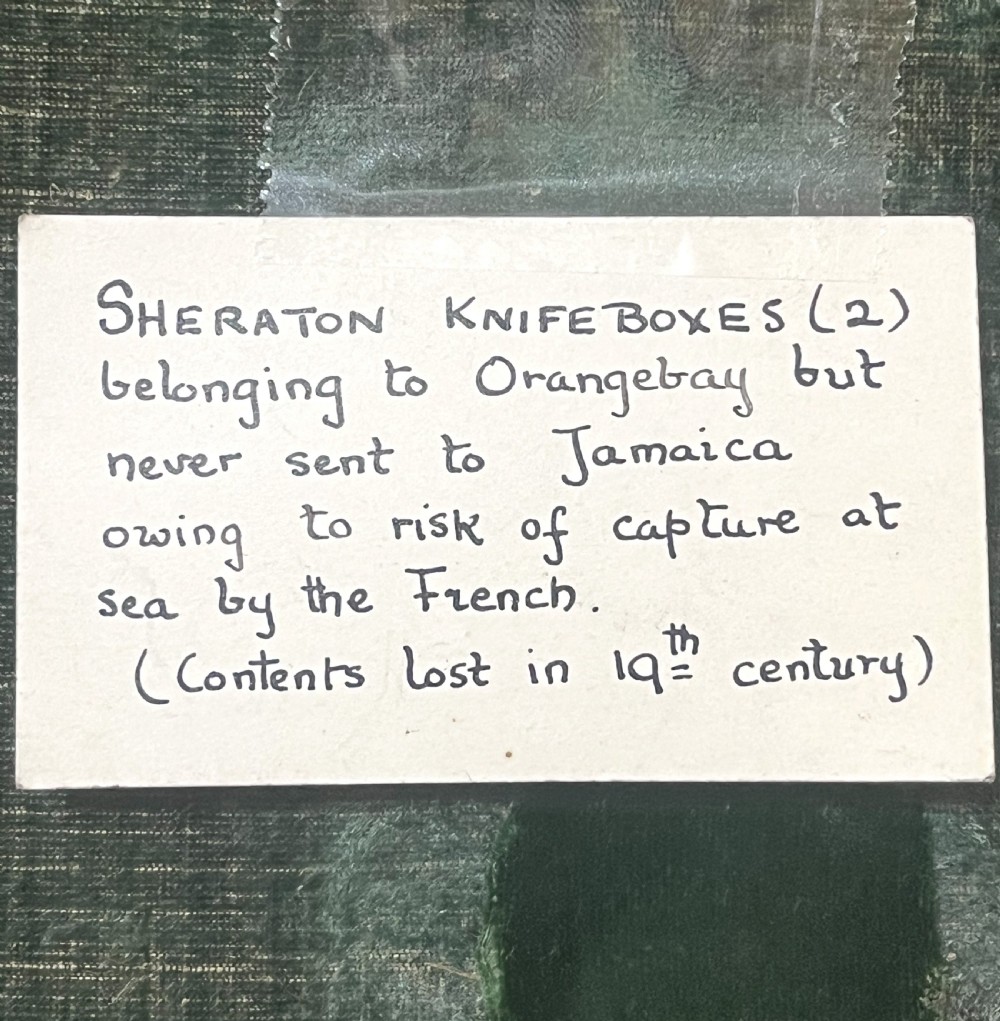 SHERATON KNIFE BOXES (2)
belonging to Orangebay but
never sent to Jamaica
owing to risk of capture at
sea by the French.
(Contents lost in 19th century)